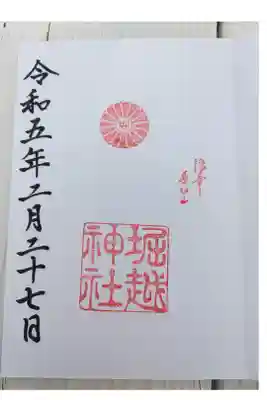 堀越
神社
令和五年二月二十七日